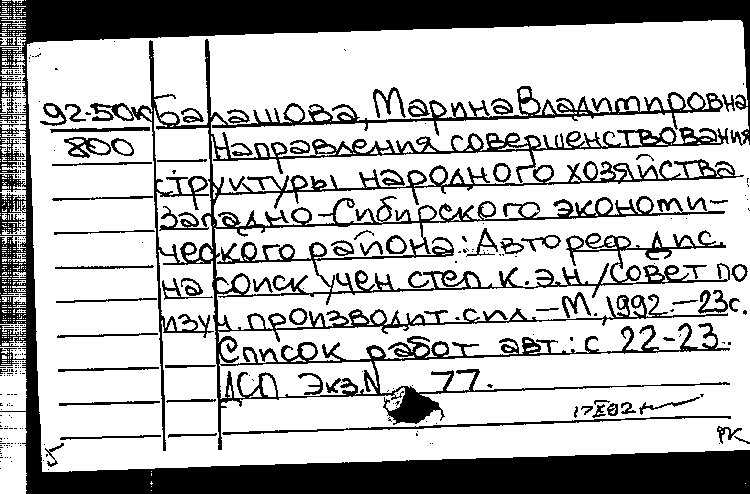 92-50к Балашова, Марина Владимировна
800 Направления совершенствования
структуры народного хозяйства
Западно-Сибирского экономи-
ческого района: Автореф. дис.
на соиск. учен. степ. к.э.н. / Совет по
изуч. производит. сил. – М., 1992. – 23с.
Список работ авт.: с 22-23.
ДСП. Экз. N 77.
РК